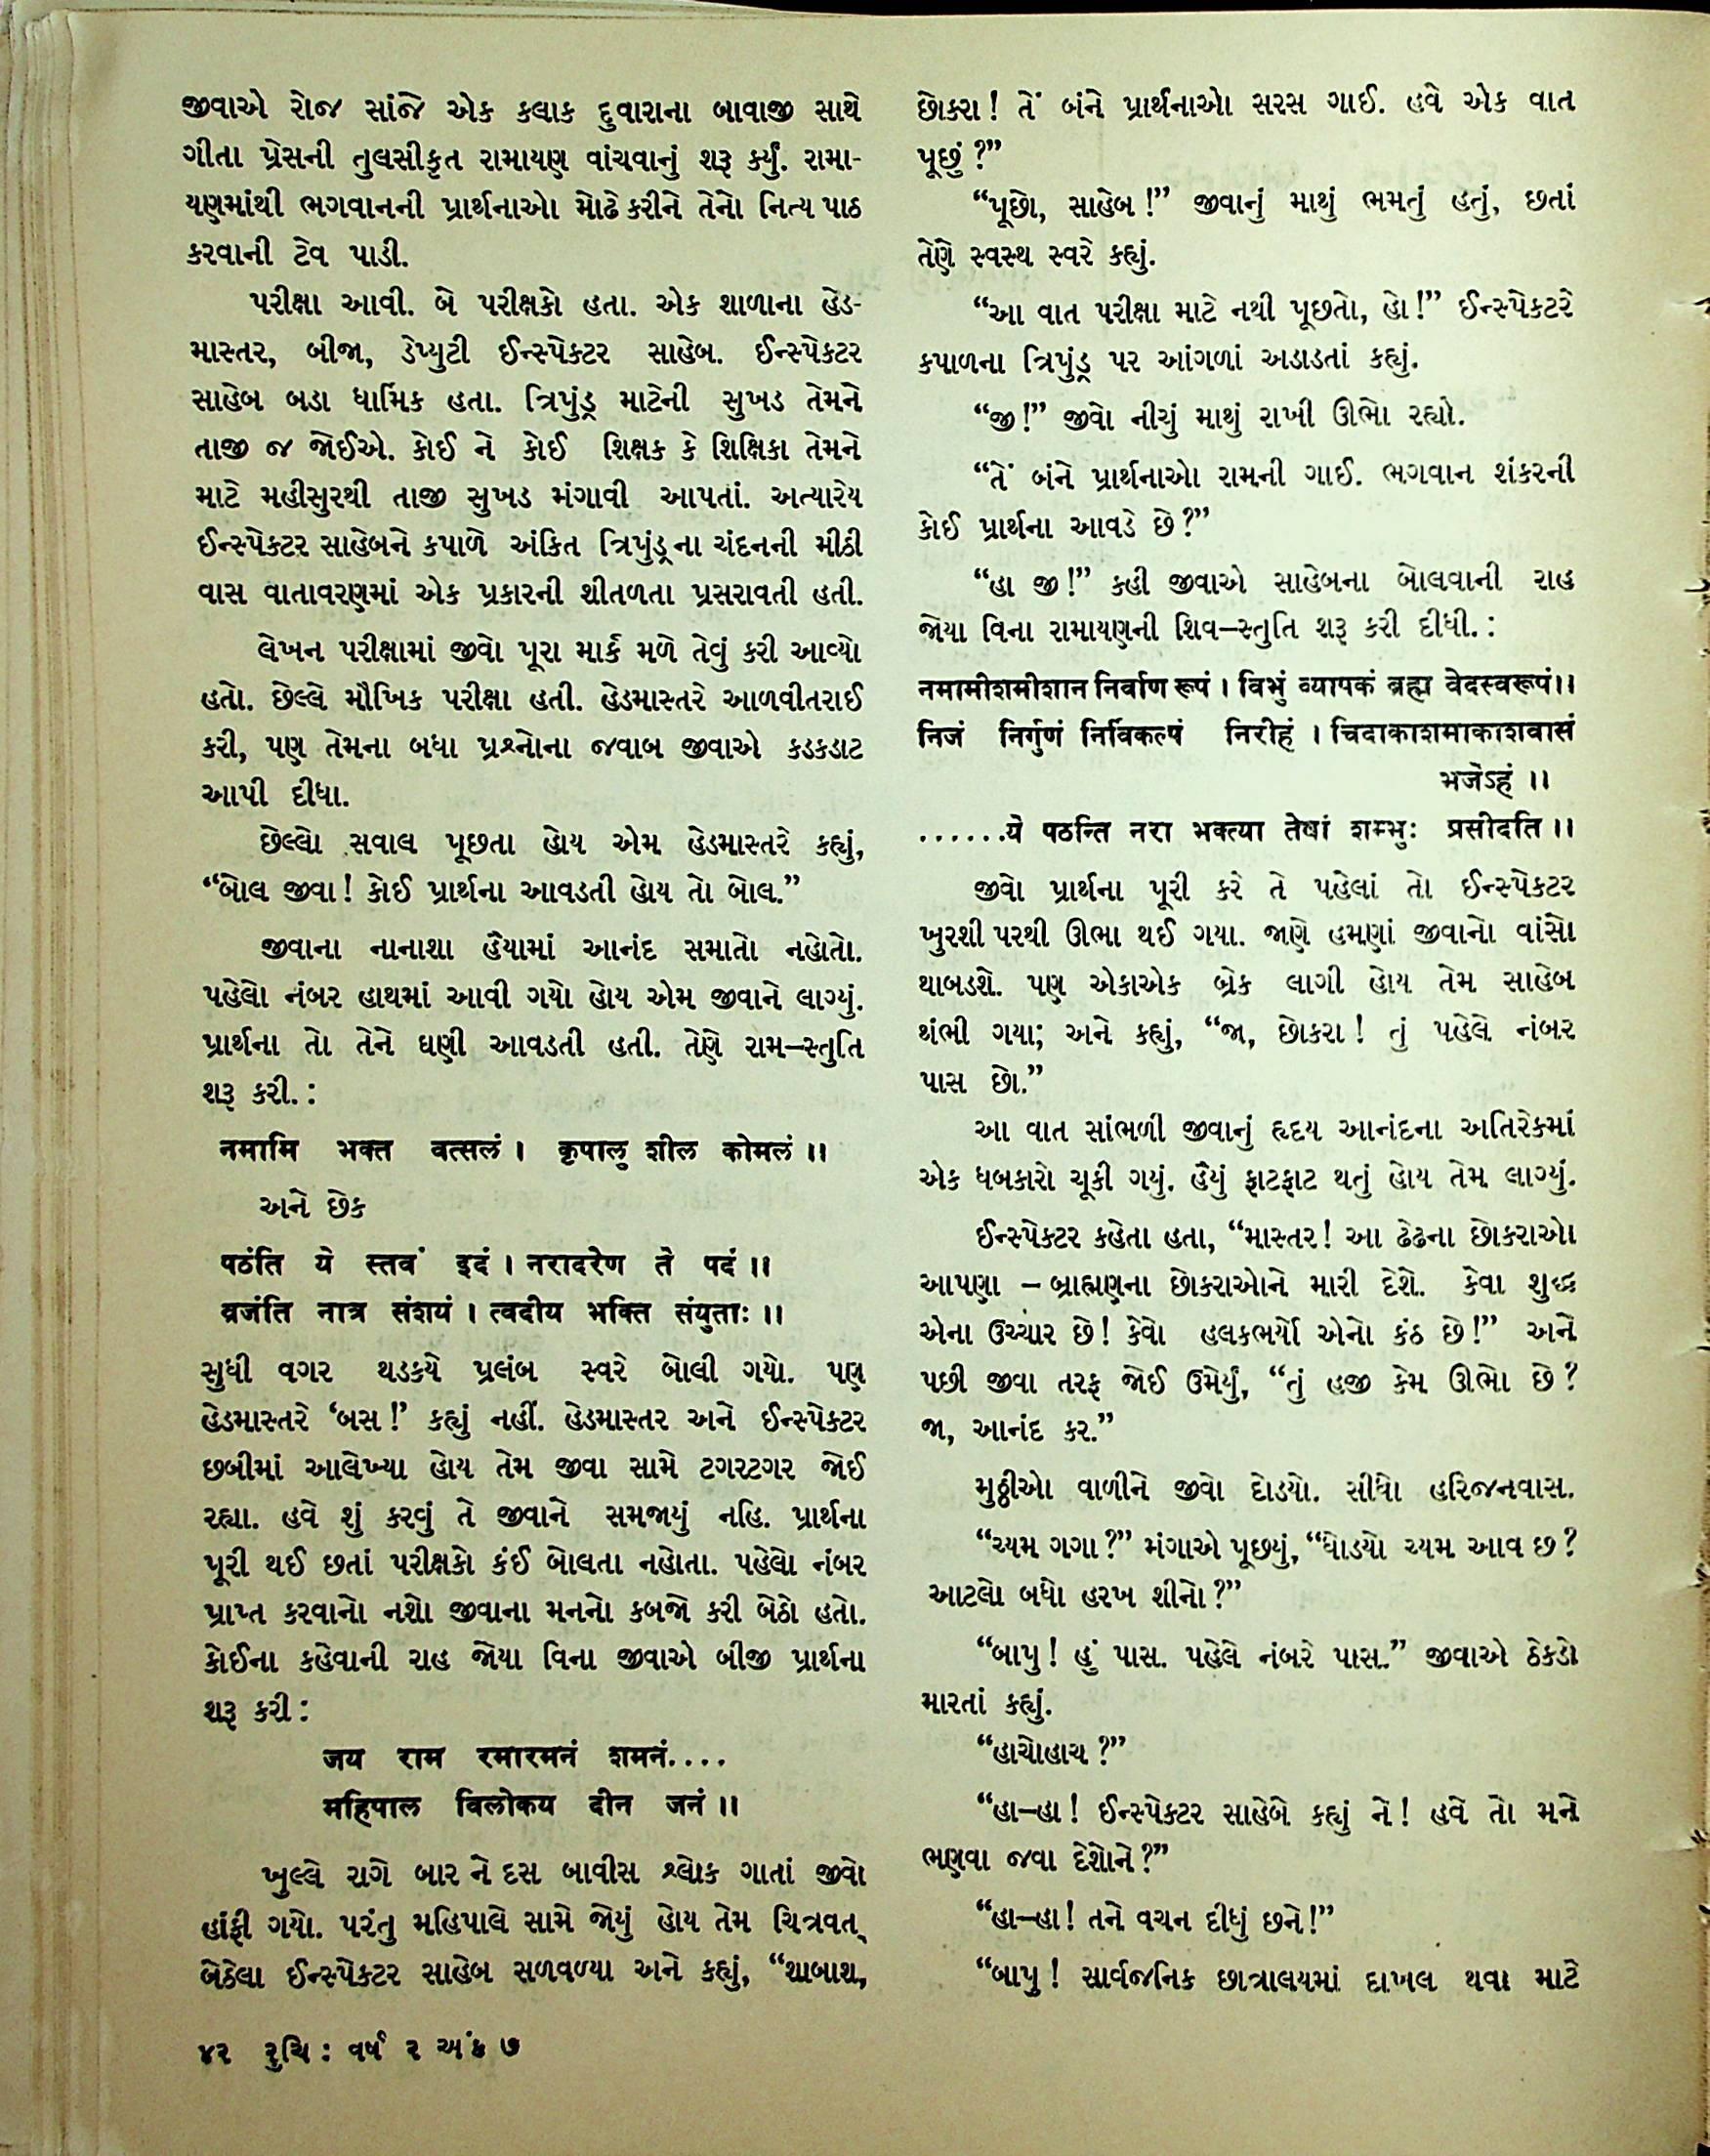 જીવાએ રોજ સાંજે એક કલાક દુવારાના બાવાજી સાથે
ગીતા પ્રેસની તુલસીકૃત રામાયણ વાંચવાનું શરૂ કર્યું. રામા-
યણમાંથી ભગવાનની પ્રાર્થનાઓ મોઢે કરીને તેનો નિત્ય પાઠ
કરવાની ટેવ પાડી.
પરીક્ષા આવી. બે પરીક્ષકો હતા. એક શાળાના હેડ-
માસ્તર, બીજા, ડેપ્યુટી ઈન્સ્પેકટર સાહેબ. ઈન્સ્પેકટર
સાહેબ બડા ધાર્મિક હતા. ત્રિપુંડ્ર માટેની સુખડ તેમને
તાજી જ જોઈએ. કોઈ ને કોઈ શિક્ષક કે શિક્ષિકા તેમને
માટે મહીસુરથી તાજી સુખડ મંગાવી આપતાં. અત્યારેય
ઈન્સ્પેક્ટર સાહેબને કપાળે અંકિત ત્રિપુંડ્રના ચંદનની મીઠી
વાસ વાતાવરણમાં એક પ્રકારની શીતળતા પ્રસરાવતી હતી.
લેખન પરીક્ષામાં જીવો પૂરા માર્ક મળે તેવું કરી આવ્યો
હતો. છેલ્લે મૌખિક પરીક્ષા હતી. હેડમાસ્તરે આળવીતરાઈ
કરી, પણ તેમના બધા પ્રશ્નોના જવાબ જીવાએ કડકડાટ
આપી દીધા.
છેલ્લો સવાલ પૂછતા હોય એમ હેડમાસ્તરે કહ્યું,
“બોલ જીવા! કોઈ પ્રાર્થના આવડતી હોય તો બોલ.”
જીવાના નાનાશા હૈયામાં આનંદ સમાતો નહોતો.
પહેલો નંબર હાથમાં આવી ગયો હોય એમ જીવાને લાગ્યું.
પ્રાર્થના તો તેને ઘણી આવડતી હતી. તેણે રામ–સ્તુતિ
શરૂ કરી. :
नमामि भक्त वत्सलं । कृपालु शील कोमलं ।।
અને છેક
पठंति ये स्तवं इदं । नरादरेण ते पदं ।।
व्रजंति नात्र संशयं । त्वदीय भक्ति संयुताः ।।
સુધી વગર થડકયે પ્રલંબ સ્વરે બોલી ગયો. પણ
હેડમાસ્તરે ‘બસ !’ કહ્યું નહીં. હેડમાસ્તર અને ઈન્સ્પેક્ટર
છબીમાં આલેખ્યા હોય તેમ જીવા સામે ટગરટગર જોઈ
રહ્યા. હવે શું કરવું તે જીવાને સમજાયું નહિ. પ્રાર્થના
પૂરી થઈ છતાં પરીક્ષકો કંઈ બોલતા નહોતા. પહેલો નંબર
પ્રાપ્ત કરવાનો નશો જીવાના મનનો કબજો કરી બેઠો હતો.
કોઈના કહેવાની રાહ જોયા વિના જીવાએ બીજી પ્રાર્થના
શરૂ કરી :
जय राम रमारमनं शमनं....
महिपाल विलोकय दीन जनं ।।
ખુલ્લે રાગે બાર ને દસ બાવીસ શ્લોક ગાતાં જીવો
હાંફી ગયો. પરંતુ મહિપાલે સામે જોયું હોય તેમ ચિત્રવત્
બેઠેલા ઈન્સ્પેક્ટર સાહેબ સળવળ્યા અને કહ્યું, “શાબાશ,
છોકરા! તેં બંને પ્રાર્થનાઓ સરસ ગાઈ. હવે એક વાત
પૂછું ?”
“પૂછો, સાહેબ !” જીવાનું માથું ભમતું હતું, છતાં
તેણે સ્વસ્થ સ્વરે કહ્યું.
“આ વાત પરીક્ષા માટે નથી પૂછતો, હો !” ઈન્સ્પેકટરે
કપાળના ત્રિપુંડ્ર પર આંગળાં અડાડતાં કહ્યું.
“જી !” જીવો નીચું માથું રાખી ઊભો રહ્યો.
“તેં બંને પ્રાર્થનાઓ રામની ગાઈ. ભગવાન શંકરની
કોઈ પ્રાર્થના આવડે છે ?”
“હા જી !” કહી જીવાએ સાહેબના બોલવાની રાહ
જોયા વિના રામાયણની શિવ–સ્તુતિ શરૂ કરી દીધી. :
नमामीशमीशान निर्वाण रूपं । विभुं व्यापकं ब्रह्म वेदस्वरूपं।।
निजं निर्गुणं निर्विकल्पं निरीहं । चिदाकाशमाकाशवासं
भजेऽहं ।।
......ये पठन्ति नरा भक्त्या तेषां शम्भुः प्रसीदति ।।
જીવો પ્રાર્થના પૂરી કરે તે પહેલાં તો ઈન્સ્પેક્ટર
ખુરશી પરથી ઊભા થઈ ગયા. જાણે હમણાં જીવાનો વાંસો
થાબડશે. પણ એકાએક બ્રેક લાગી હોય તેમ સાહેબ
થંભી ગયા; અને કહ્યું, “જા, છોકરા! તું પહેલે નંબર
પાસ છો.”
આ વાત સાંભળી જીવાનું હૃદય આનંદના અતિરેકમાં
એક ધબકારો ચૂકી ગયું. હૈયું ફાટફાટ થતું હોય તેમ લાગ્યું.
ઈન્સ્પેક્ટર કહેતા હતા, “માસ્તર! આ ઢેઢના છોકરાઓ
આપણા – બ્રાહ્મણના છોકરાઓને મારી દેશે. કેવા શુદ્ધ
એના ઉચ્ચાર છે! કેવો હલકભર્યો એનો કંઠ છે!” અને
પછી જીવા તરફ જોઈ ઉમેર્યું, “તું હજી કેમ ઊભો છે?
જા, આનંદ કર.”
મુઠ્ઠીઓ વાળીને જીવો દોડયો. સીધો હરિજનવાસ.
“ચ્યમ ગગા?” મંગાએ પૂછયું, “ધોડયો ચ્યમ આવ છ?
આટલો બધો હરખ શીનો?”
“બાપુ! હું પાસ. પહેલે નંબરે પાસ.” જીવાએ ઠેકડો
મારતાં કહ્યું.
“હાચોહાચ ?”
“હા–હા! ઈન્સ્પેક્ટર સાહેબે કહ્યું ને! હવે તો મને
ભણવા જવા દેશોને?”
“હા–હા! તને વચન દીધું છને!”
“બાપુ! સાર્વજનિક છાત્રાલયમાં દાખલ થવા માટે
૪૨ રુચિ : વર્ષ ૨ અંક ૭